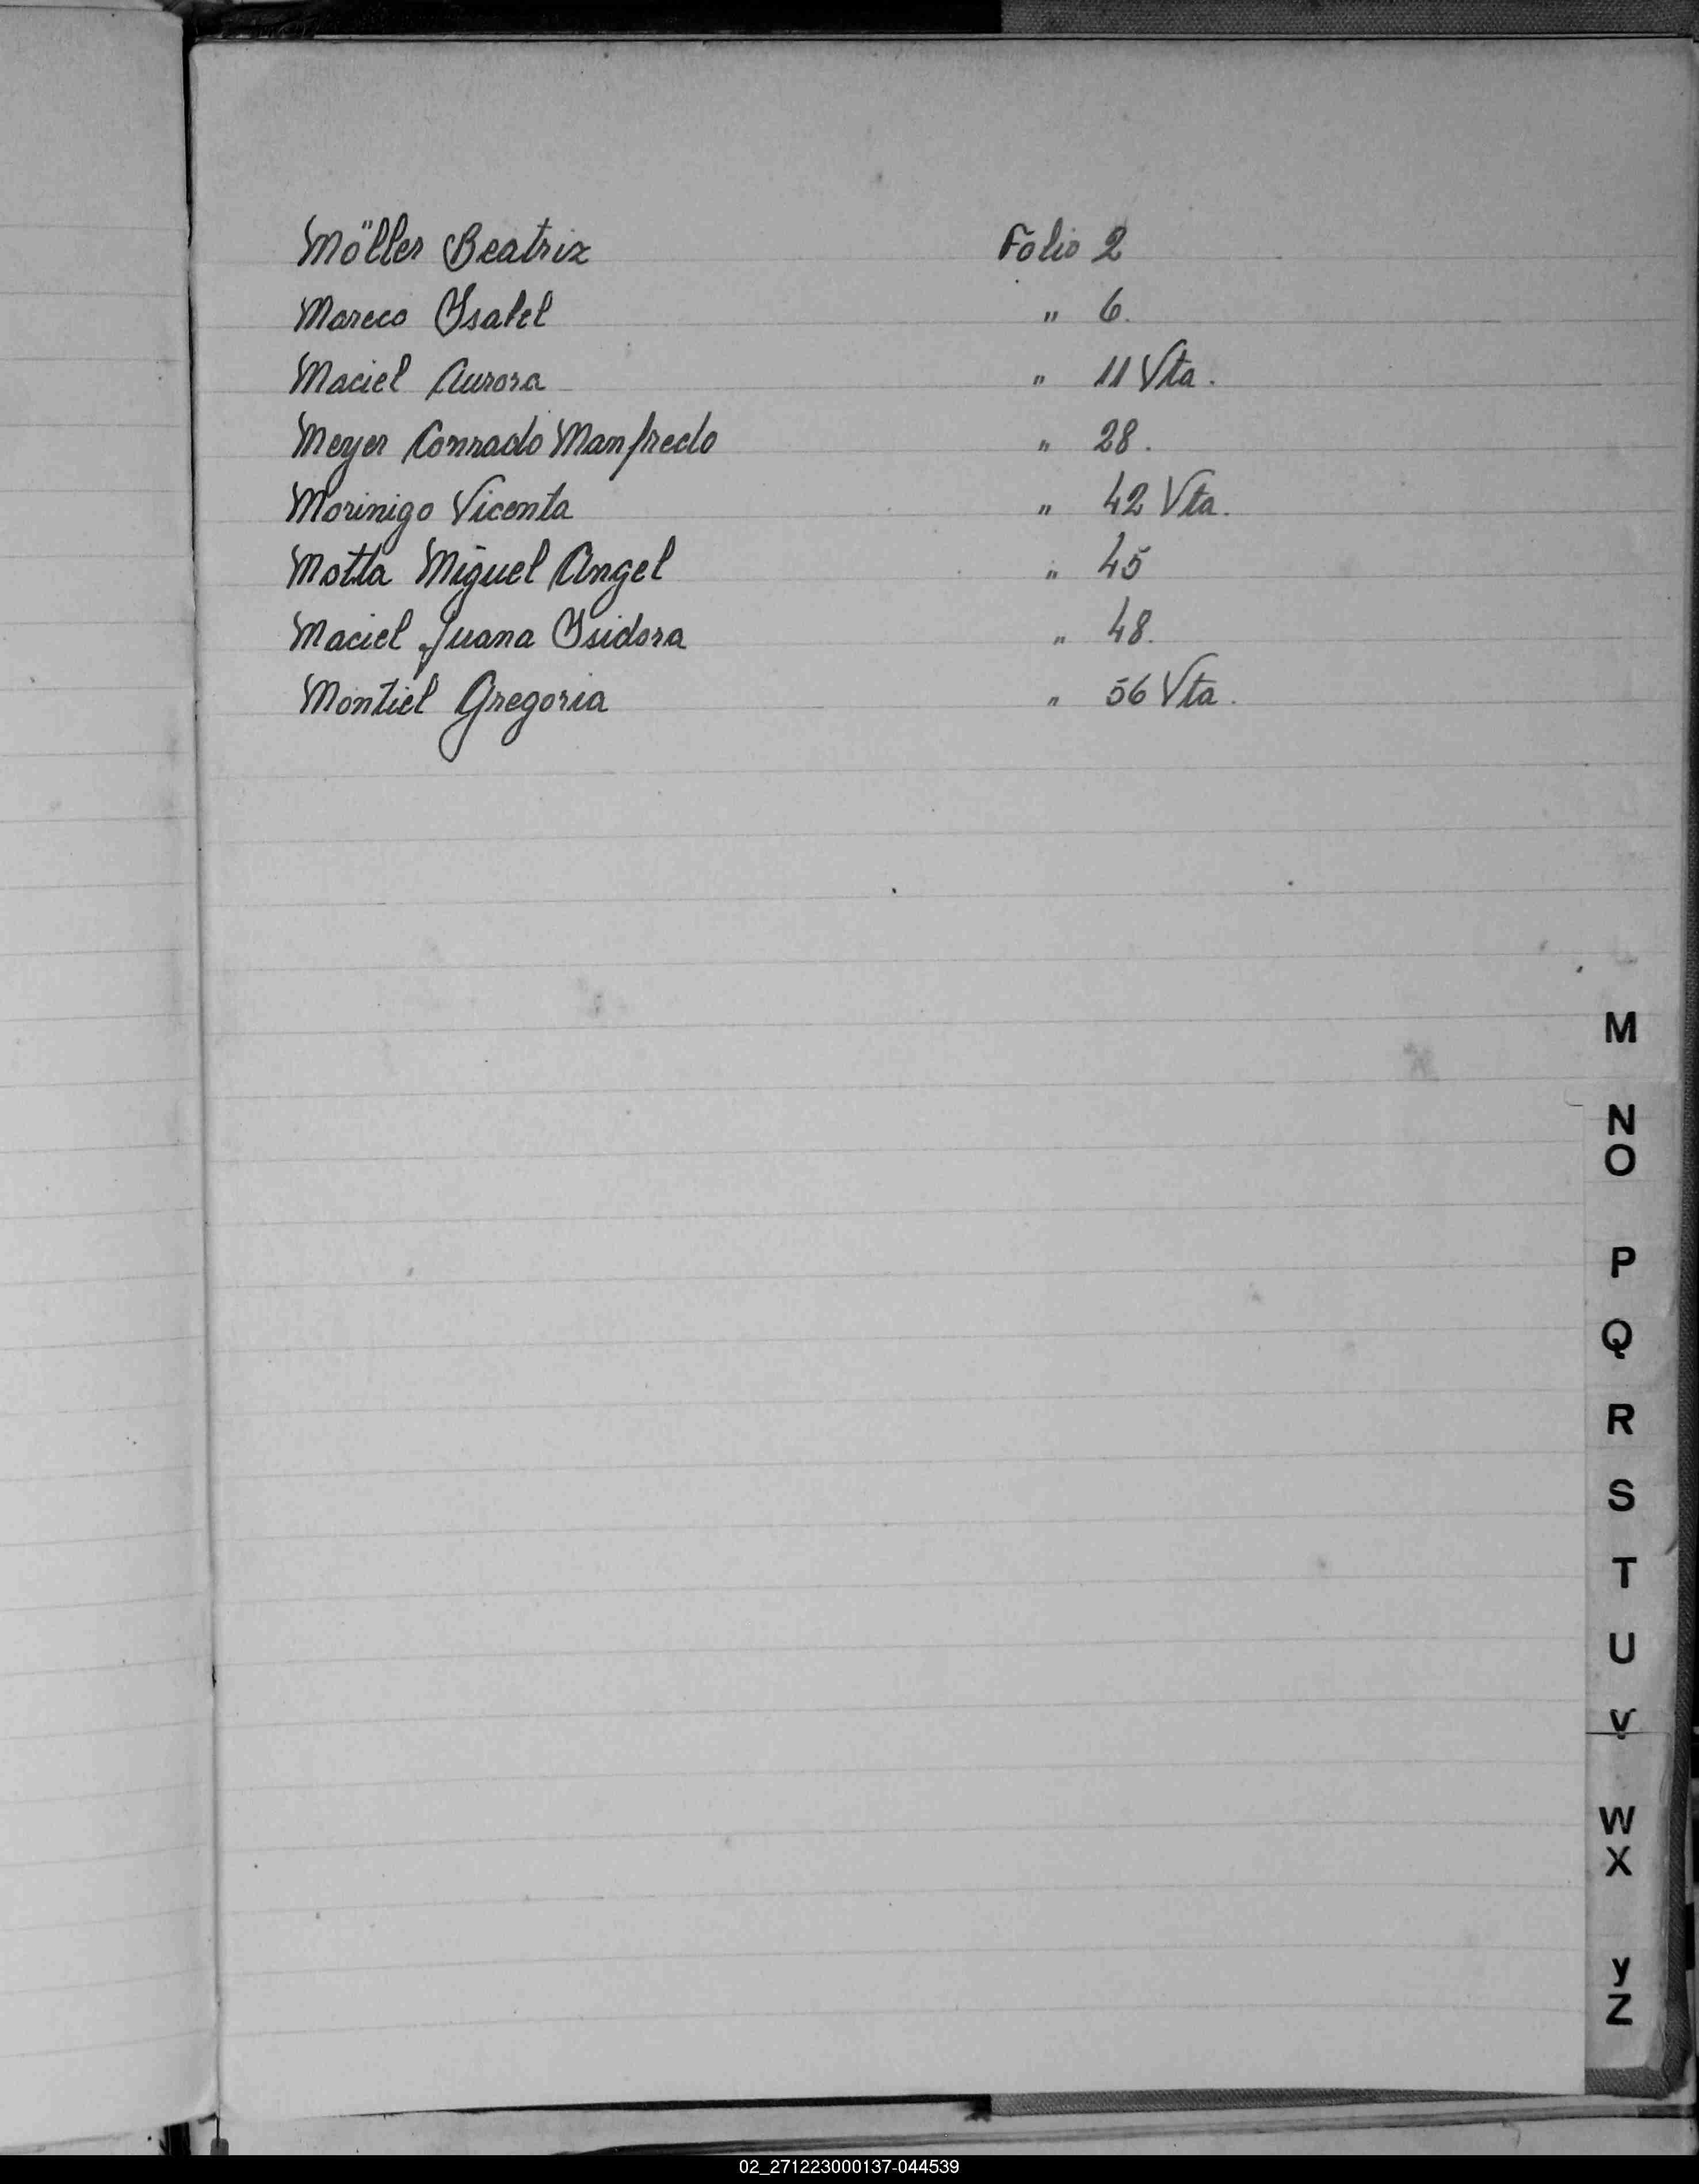 Möller Beatriz Folio 2
Mareco Ysabel " 6.
Maciel Aurora " 11 Vta.
Meyer Conrado Manfredo " 28.
Morinigo Vicenta " 42 Vta.
Motta Miguel Angel " 45
Maciel Juana Ysidora " 48.
Montiel Gregoria " 56 Vta.
M
N
O
P
Q
R
S
T
U
V
W
X
y
Z
02_271223000137-044539